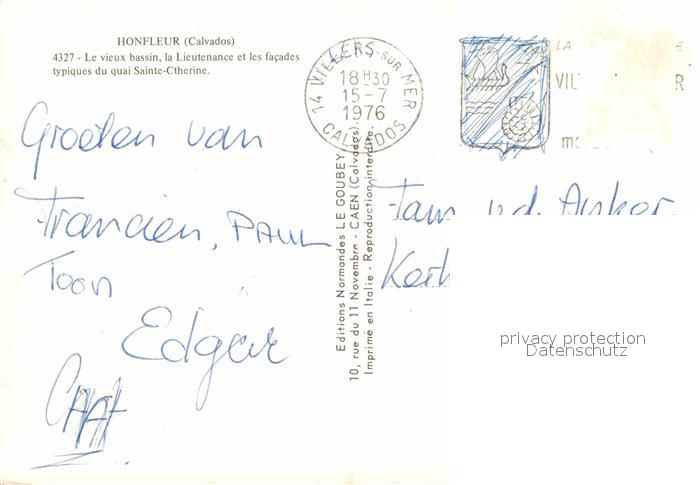 HONFLEUR (Calvados)
4327 - Le vieux bassin, la Lieutenance et les façades
typiques du quai Sainte-Ctherine.
14 VILLERS-SUR-MER
18H30
15-7
1976
CALVADOS
LA
VIL
Groeten van
Francien, PAUL
Toon
Edgar
Editions Normandes LE GOUBEY
10, rue du 11 Novembre - CAEN (Calvados).
Imprimé en Italie - Reproduction interdite.
Fam. v.d. Anker
Kerk
privacy protection
Datenschutz